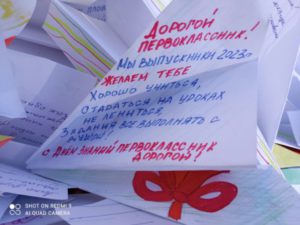 Дорогой
первоклассник!
Мы выпускники 2023г
Желаем тебе
Хорошо учиться,
Стараться на уроках
не лениться
Задания все выполнять с
С Днём знаний первоклассник
дорогой!
SHOT ON REDMI 9
AI QUAD CAMERA